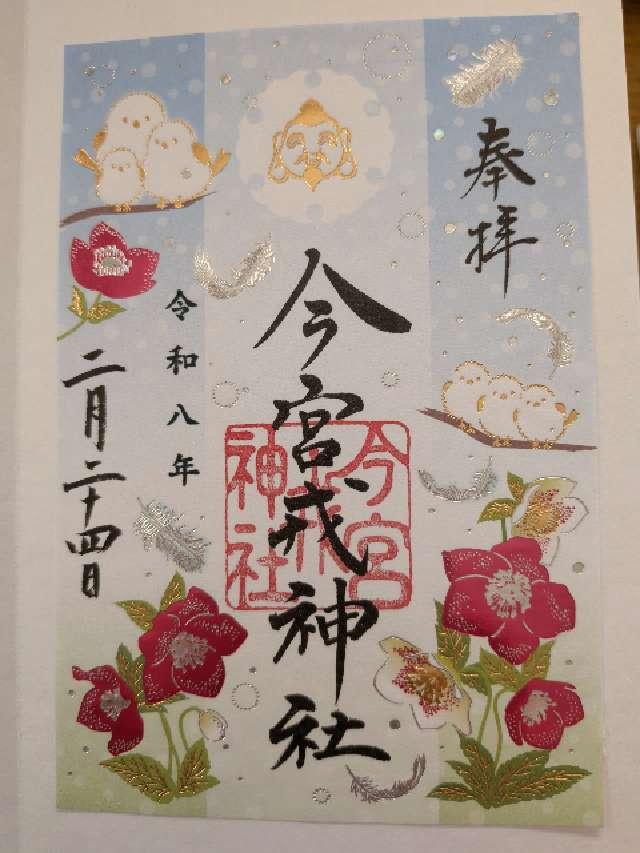 奉拝
今宮戎神社
今宮
戎
神社
令和八年
二月二十四日